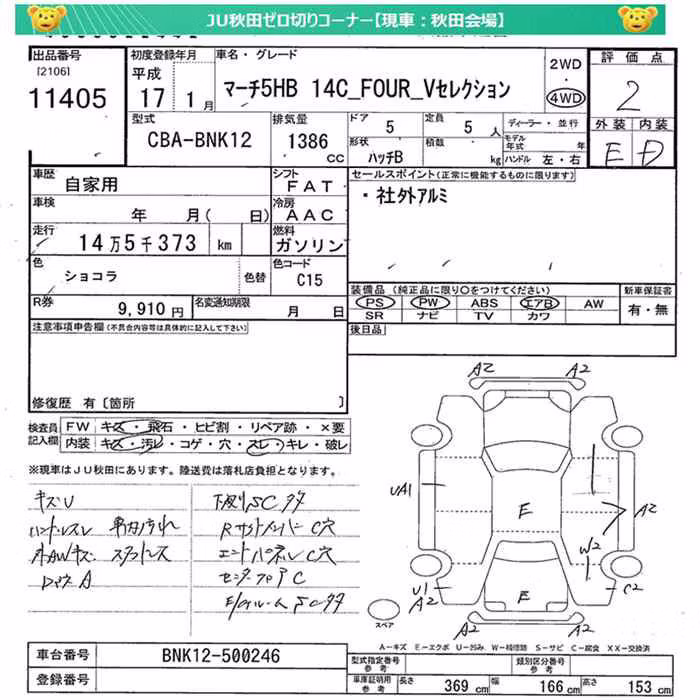 JU秋田ゼロ切りコーナー【現車：秋田会場】
出品番号 初度登録年月 車名・グレード 2WD 評価点
[2106] 平成
11405 17 1月 マーチ5HB 14C_FOUR_Vセレクション 4WD 2
型式 排気量 ドア 定員 ディーラー・並行 外装 内装
CBA-BNK12 1386 cc 5 5人 モデル年式 年 E D
形状 積数
ハッチB kg ハンドル 左・右
車歴 シフト セールスポイント(正常に機能するものに限ります)
自家用 FAT ・社外アルミ
車検 冷房
年 月( 日) AAC
走行 燃料
14万5千373 km ガソリン
色 色コード
ショコラ 色替 C15
装備品 (純正品に限り○をつけてください) 新車保証書
R券 9,910円 名変通知期限 月 日 PS PW ABS エアB AW 有・無
SR ナビ TV カワ
注意事項申告欄(不具合内容等は具体的に記入して下さい) 後日品
修復歴 有 [箇所 ]
検査員記入欄 FW キズ・飛石・ヒビ割・リペア跡・×要
内装 キズ・汚レ・コゲ・穴・スレ・キレ・破レ
※現車はJU秋田にあります。陸送費は落札店負担となります。
A2 A2
キズU 下廻りSCサタ
ハンドルスレ 車内汚れ Rサイドメンバー C穴
社外AWキズ スタッドレス エンドパネル C穴
UA1 E A2
W2
U1 A2 E C2
スペア
A−キズ E−エクボ U−凹み W−補修跡 S−サビ C−腐食 XX−交換済
車台番号 BNK12-500246 型式指定番号 参考 類別区分番号 参考
登録番号 車庫証明用 参考 長さ 369cm 幅 166cm 高さ 153cm